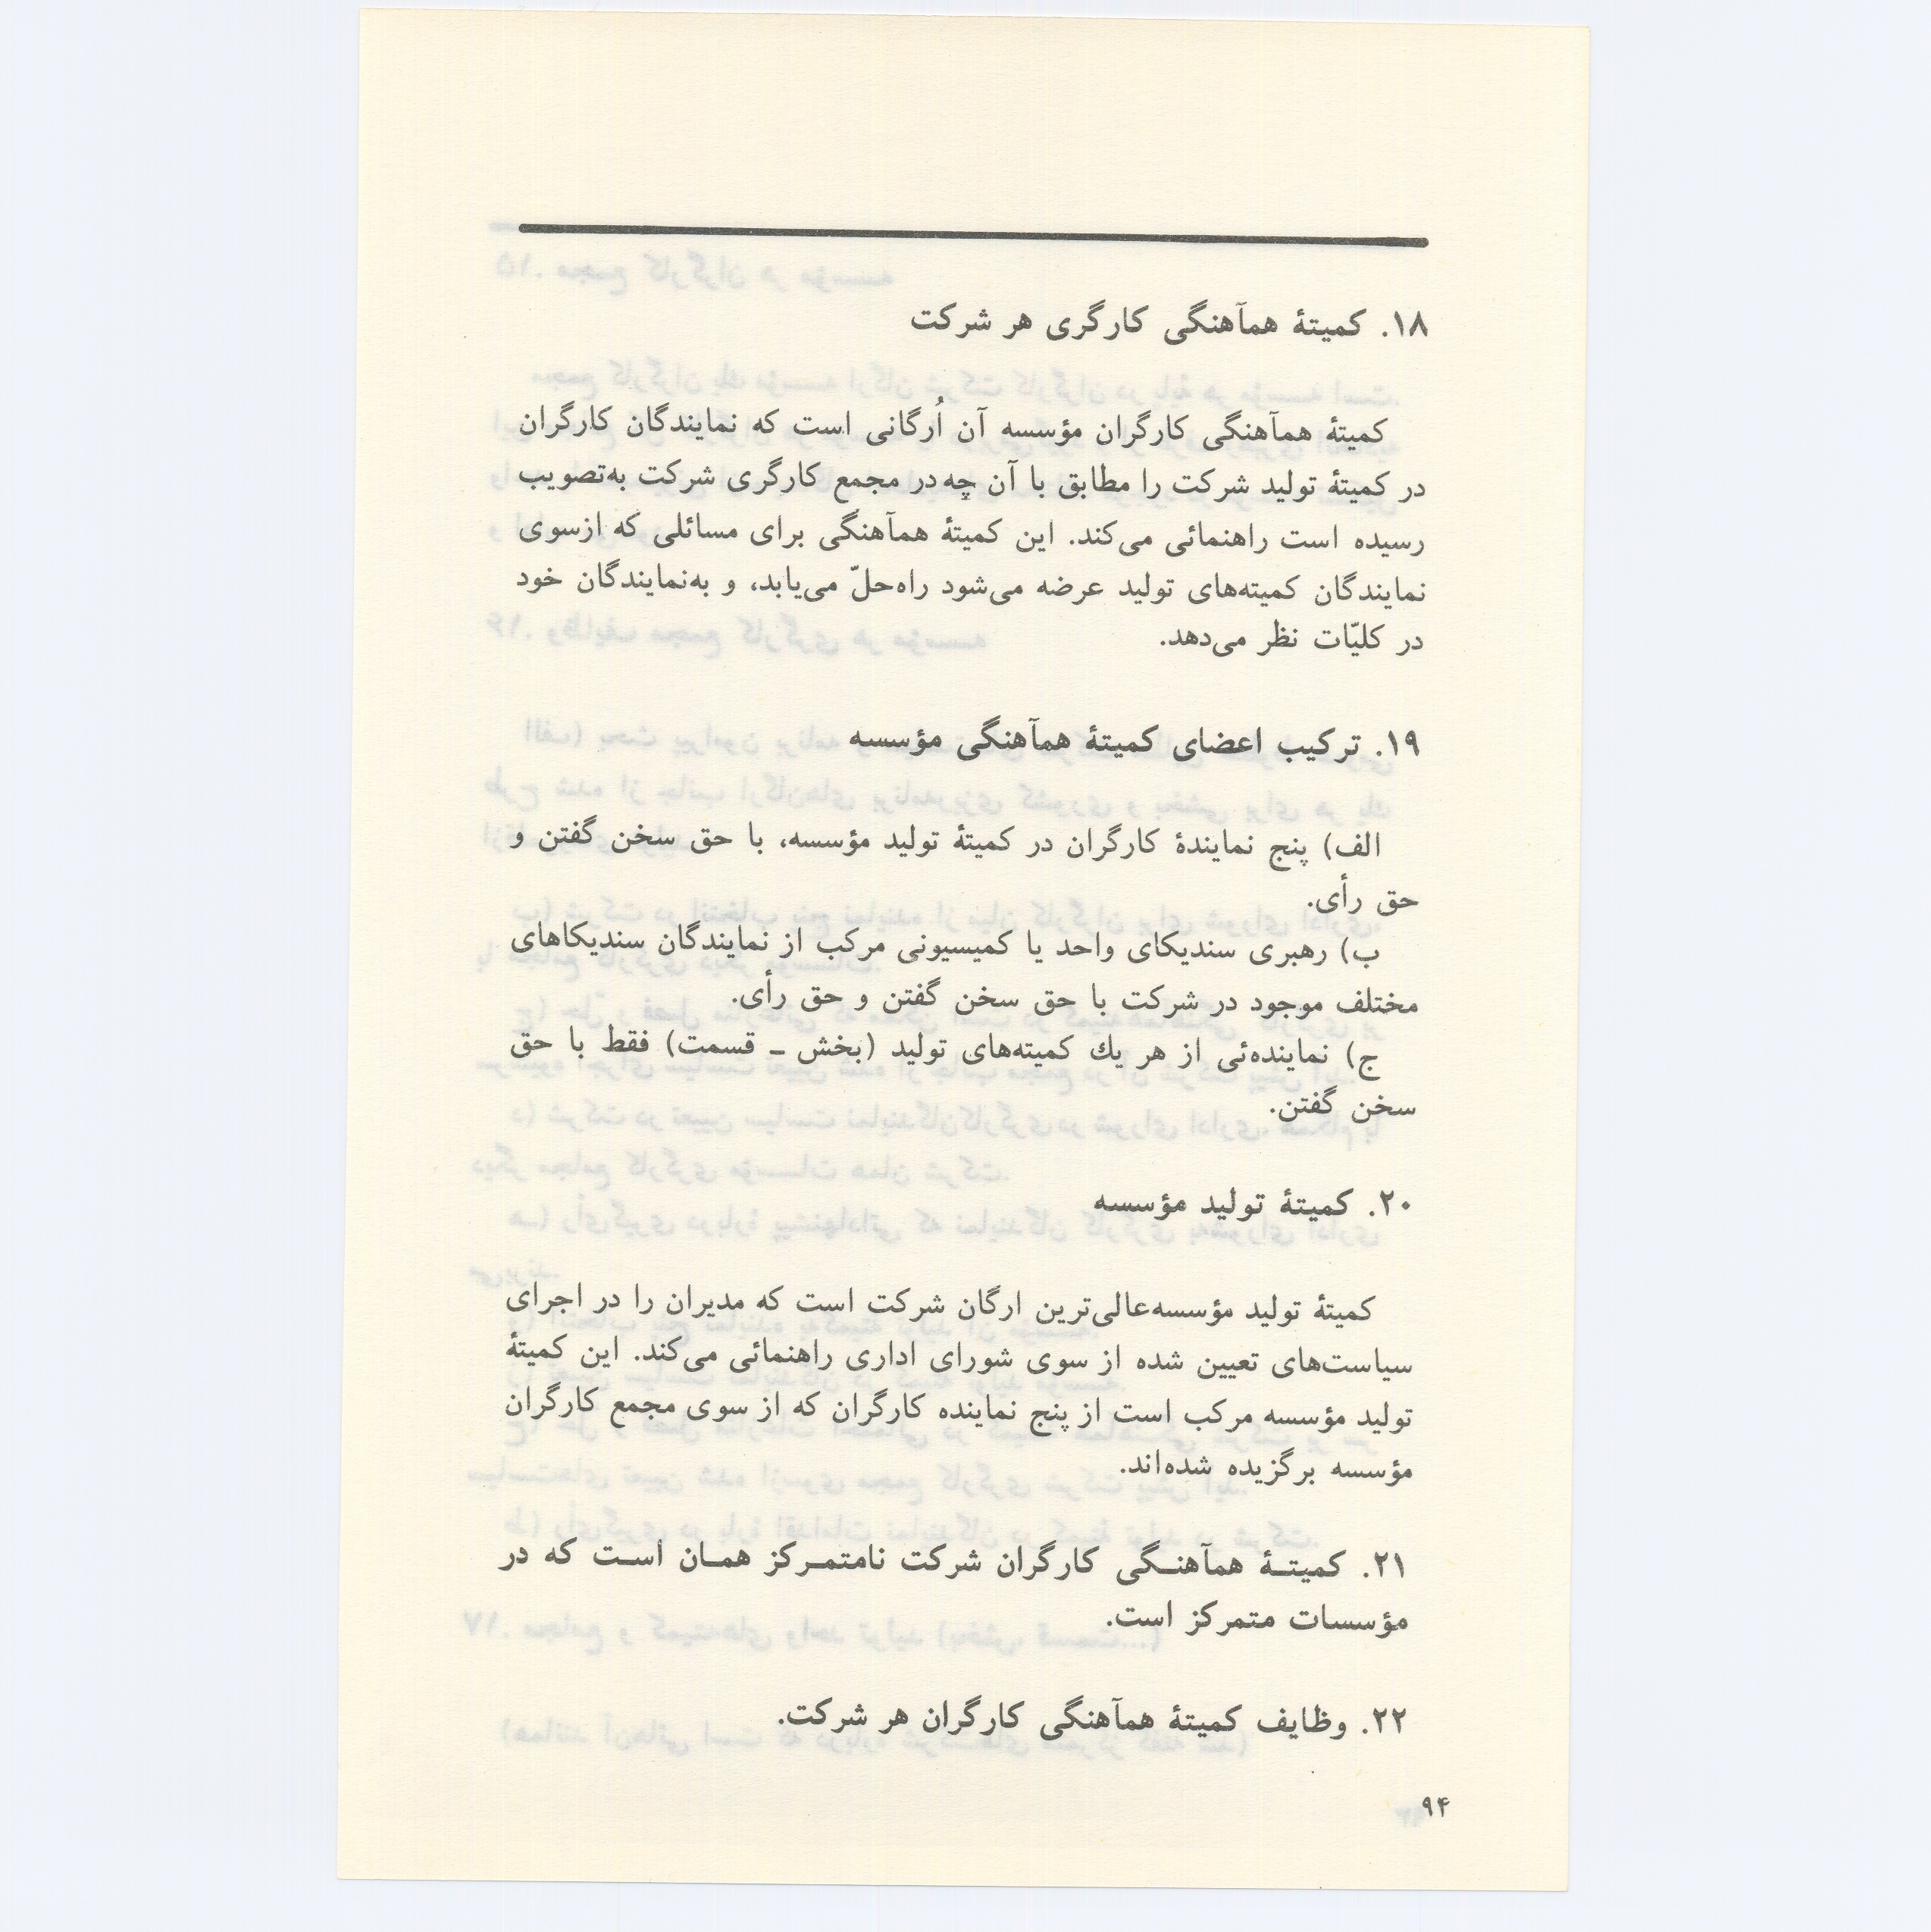 ۱۸. کمیتهٔ همآهنگی کارگری هر شرکت
کمیتهٔ همآهنگی کارگران مؤسسه آن اُرگانی است که نمایندگان کارگران
در کمیتهٔ تولید شرکت را مطابق با آن چه در مجمع کارگری شرکت به‌تصویب
رسیده است راهنمائی می‌کند. این کمیتهٔ همآهنگی برای مسائلی که ازسوی
نمایندگان کمیته‌های تولید عرضه می‌شود راه‌حلّ می‌یابد، و به‌نمایندگان خود
در کلیّات نظر می‌دهد.
۱۹. ترکیب اعضای کمیتهٔ همآهنگی مؤسسه
الف) پنج نمایندهٔ کارگران در کمیتهٔ تولید مؤسسه، با حق سخن گفتن و
حق رأی.
ب) رهبری سندیکای واحد یا کمیسیونی مرکب از نمایندگان سندیکاهای
مختلف موجود در شرکت با حق سخن گفتن و حق رأی.
ج) نماینده‌ئی از هر یك کمیته‌های تولید (بخش ـ قسمت) فقط با حق
سخن گفتن.
۲۰. کمیتهٔ تولید مؤسسه
کمیتهٔ تولید مؤسسه‌عالی‌ترین ارگان شرکت است که مدیران را در اجرای
سیاست‌های تعیین شده از سوی شورای اداری راهنمائی می‌کند. این کمیتهٔ
تولید مؤسسه مرکب است از پنج نماینده کارگران که از سوی مجمع کارگران
مؤسسه برگزیده شده‌اند.
۲۱. کمیتـهٔ همآهنـگی کارگران شرکت نامتمـرکز همـان اسـت که در
مؤسسات متمرکز است.
۲۲. وظایف کمیتهٔ همآهنگی کارگران هر شرکت.
۹۴